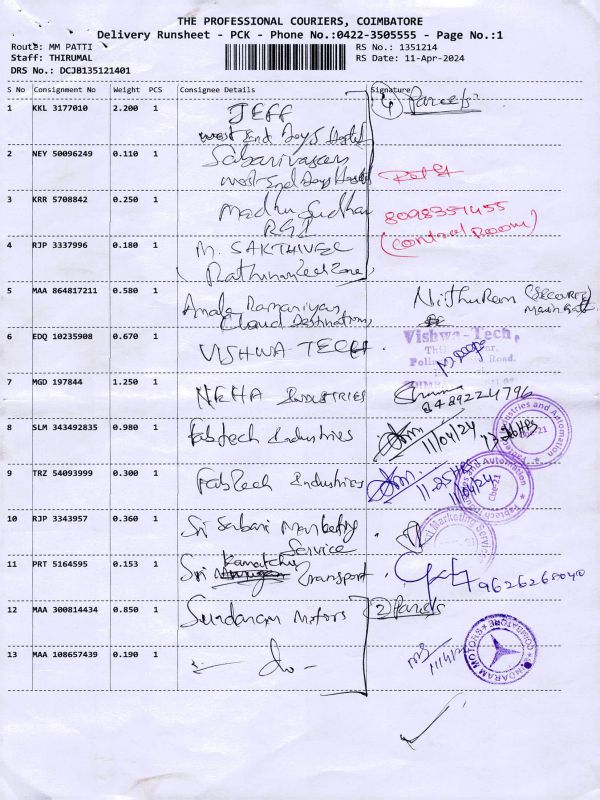 THE PROFESSIONAL COURIERS, COIMBATORE
Delivery Runsheet - PCK - Phone No.:0422-3505555 - Page No.:1
Route: MM PATTI
RS No.: 1351214
Staff: THIRUMAL
RS Date: 11-Apr-2024
DRS No.: DCJB135121401
S No Consignment No Weight PCS Consignee Details Signature
1 KKL 3177010 2.200 1 JEFF 4 Parcels
West End Boys Hostel
2 NEY 50096249 0.110 1 Sabarivasan
West End Boys Hostel
3 KRR 5708842 0.250 1 Madhu Sudhan 8098357455
RGI (Control Room)
4 RJP 3337996 0.180 1 M. SAKTHIVEL
(Rathinam Tech Zone)
5 MAA 864817211 0.580 1 Amala Ramaniyas Nithuran (Security
Cloud Destinations Main Gate
6 EDQ 10235908 0.670 1 VISHWA TECH. Vishwa-Tech,
Road.
7 MGD 197844 1.250 1 NEHA INDUSTRIES
8489224796
8 SLM 343492835 0.980 1 Fabtech Industries 11/04/24
9 TRZ 54093999 0.300 1 FabTech Industries 11.25 HRS
11/04/24
10 RJP 3343957 0.360 1 Sri Sabari Marketing
Service
11 PRT 5164595 0.153 1 Sri Kamatchi Transport. 9626268040
12 MAA 300814434 0.850 1 Sundaram Motors 2 Parcels
13 MAA 108657439 0.190 1 - do - 11/4/24
SUNDARAM MOTORS COIMBATORE